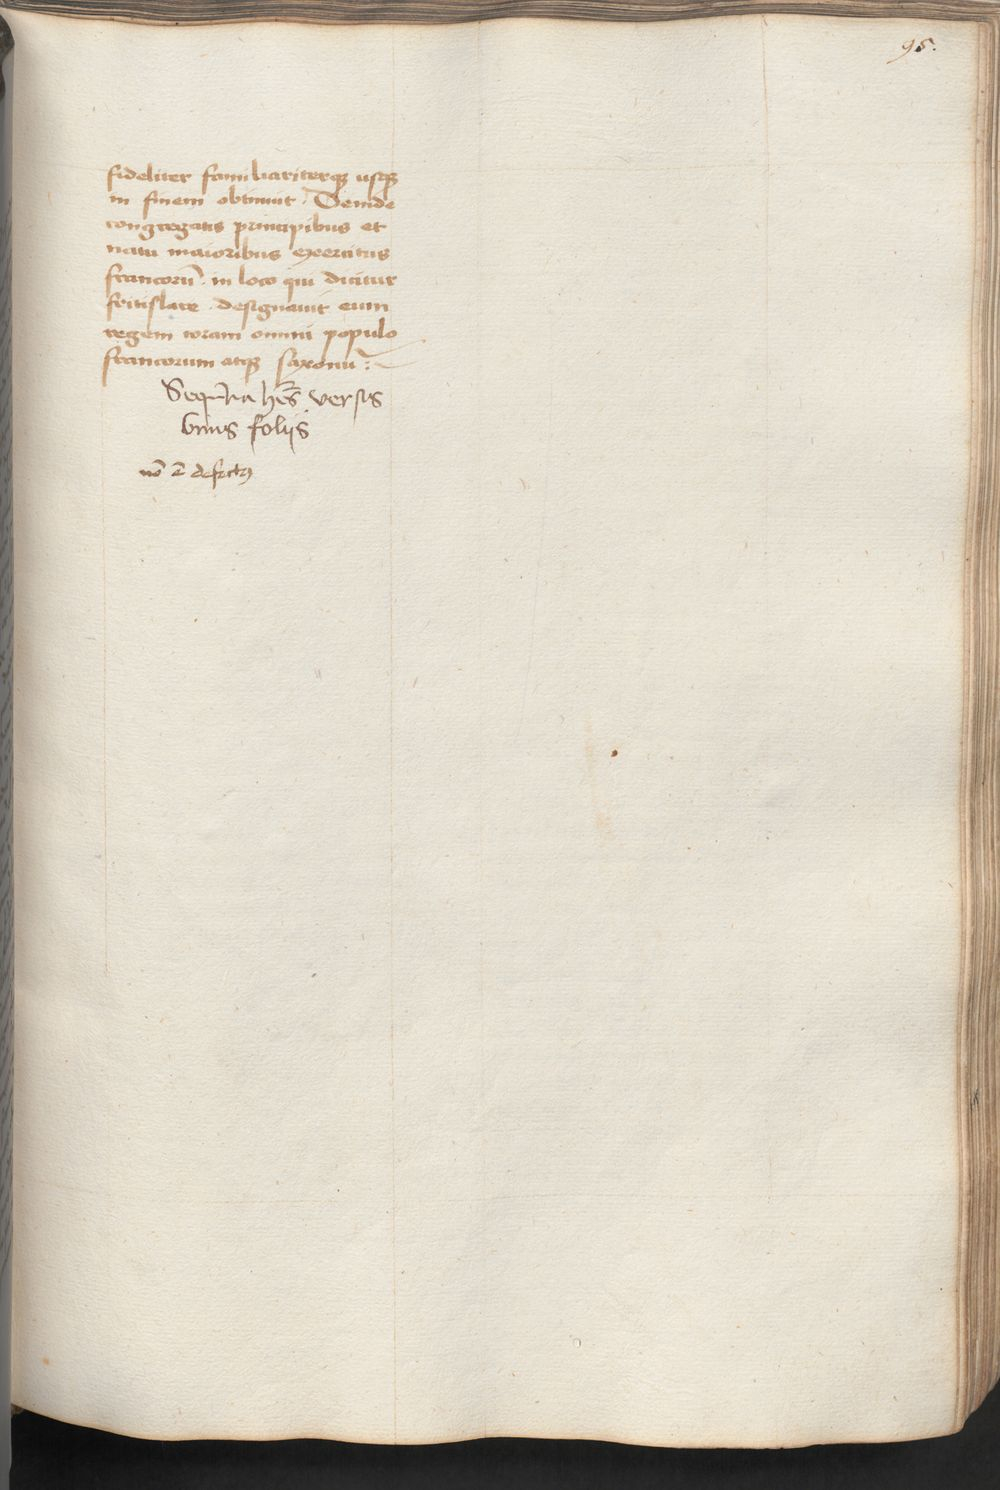 95.
fideliter familiariterqꝫ usqꝫ
in finem obtinuit. Deinde
congregatis principibus et
natu maioribus exercitus
francorū. in loco qui dicitur
fritislare. designauit eum
regem coram omni populo
francorum atqꝫ saxonū:
Sequētia hēs versis
binis folijs
nō ē defectꝰ